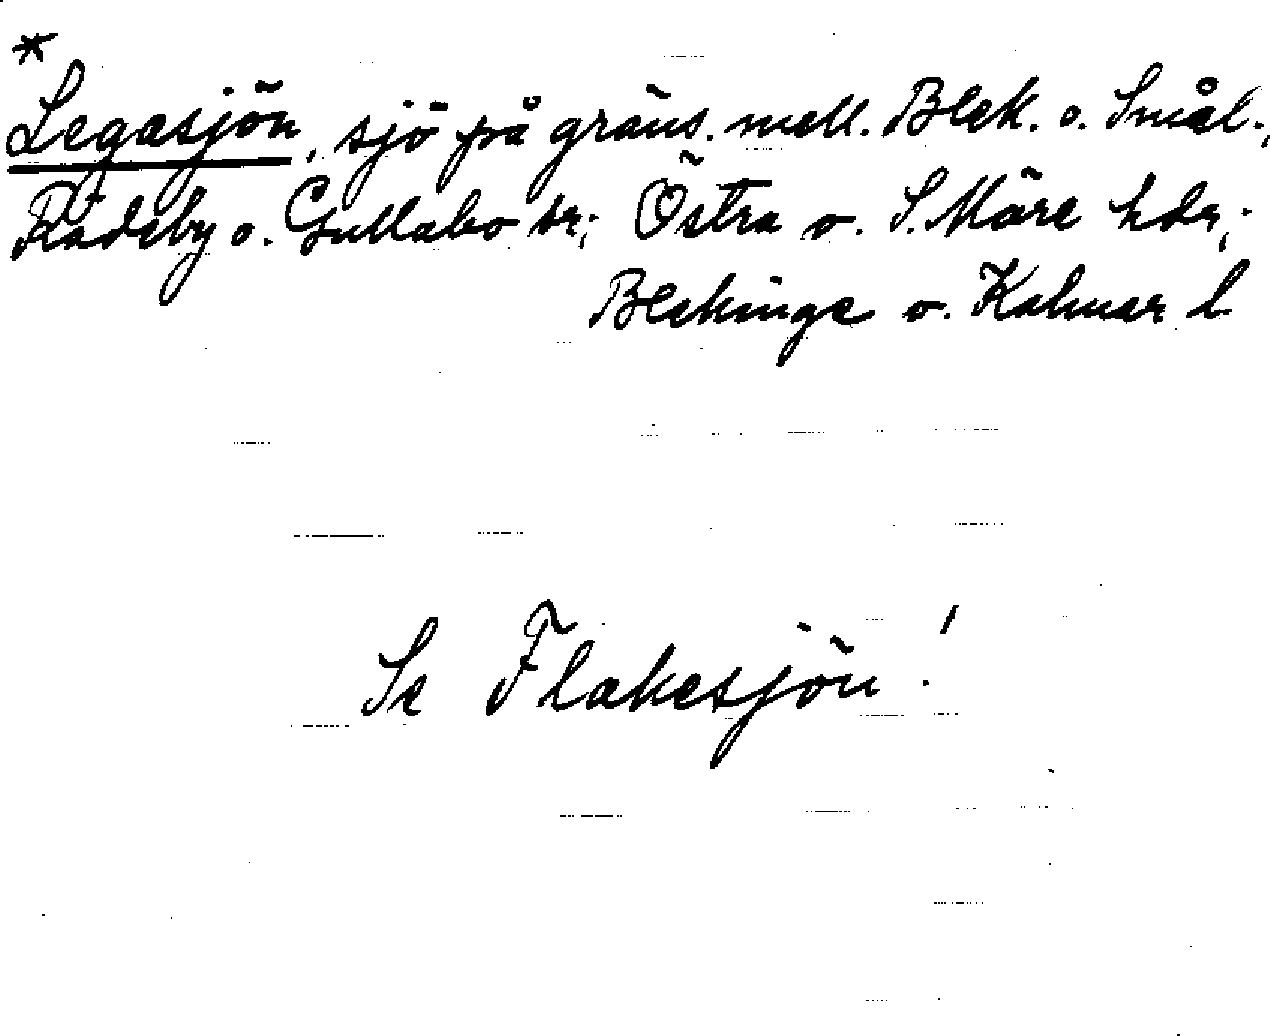 *
Legasjön, sjö på gräns. mell. Blek. o. Smål.;
Rådeby o. Gullabo sr; Östra o. S. Möre hdr;
Blekinge o. Kalmar l
Se Flakesjön!